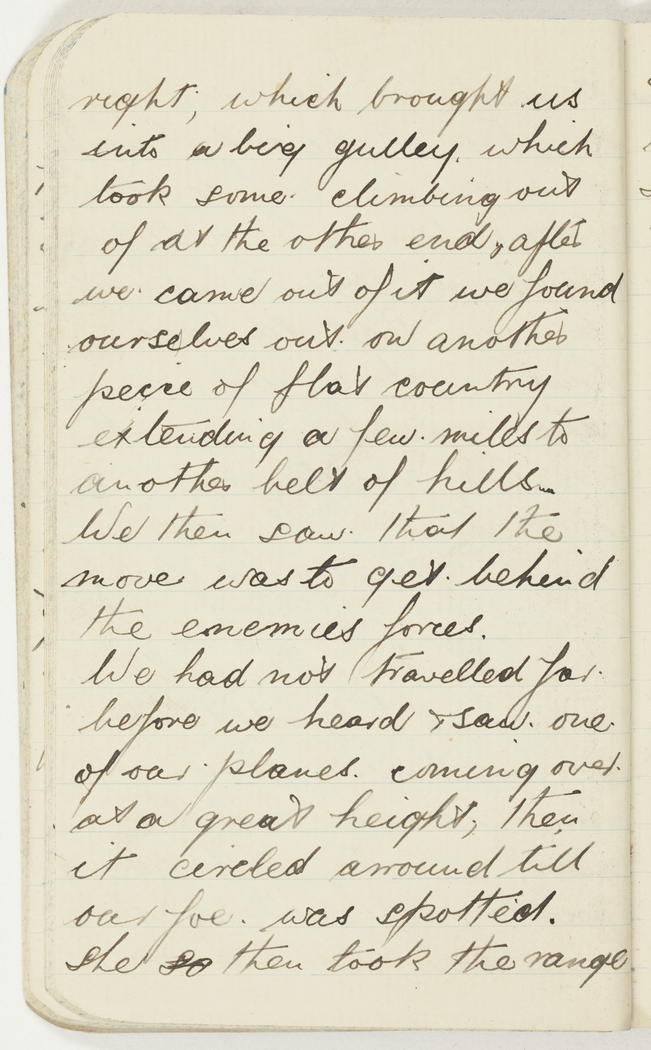 right; which brought us
into a big gulley which
took some climbing out
of at the other end, after
we came out of it we found
ourselves out on another
peice of flat country
extending a few miles to
another belt of hills.
We then saw that the
move was to get behind
the enemies forces.
We had not travelled far
before we heard & saw one
of our planes coming over
at a great height; then
it circled arround till
our foe was spotted.
She so then took the range